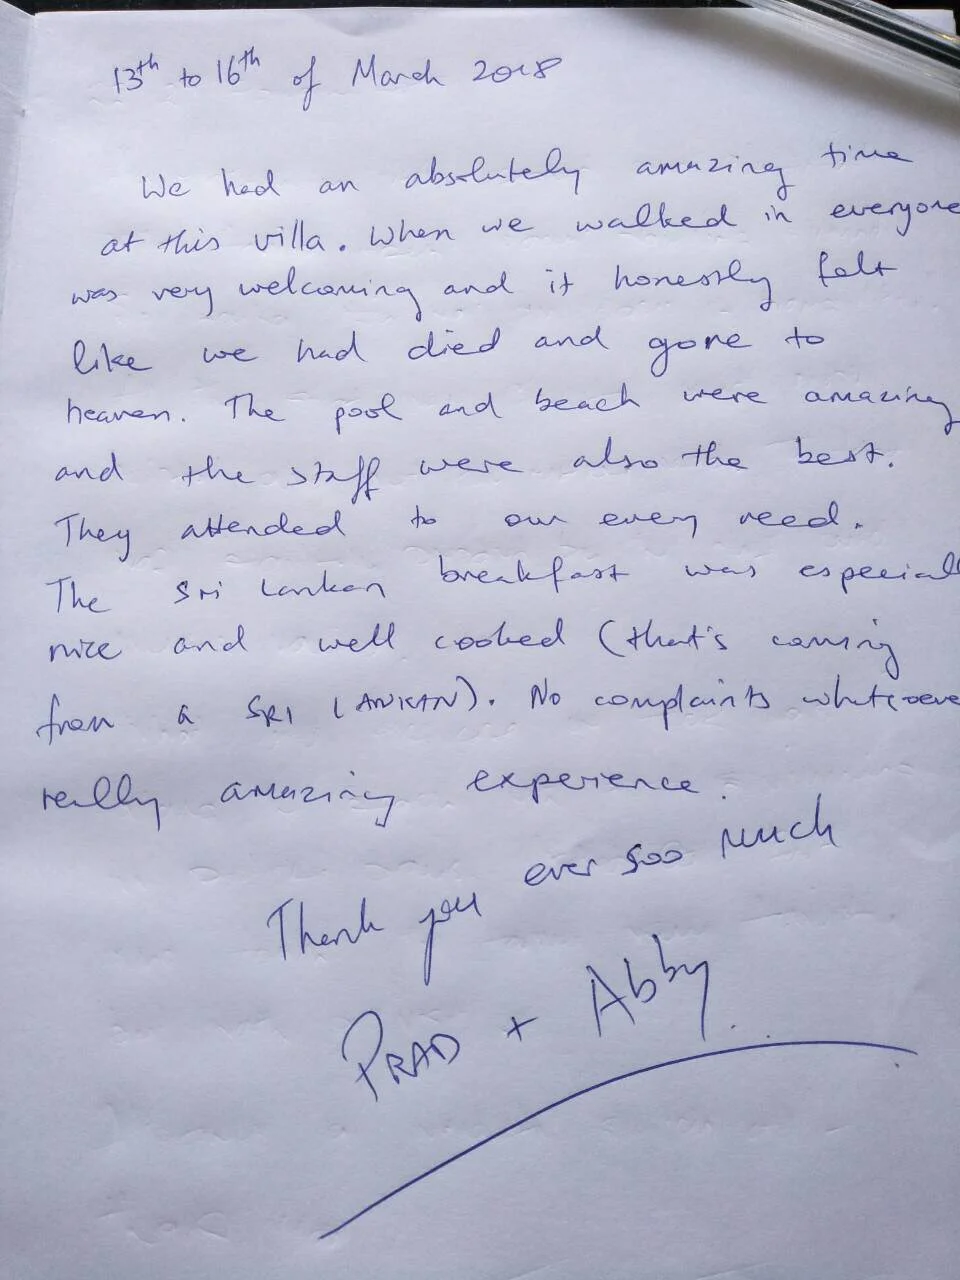 13th to 16th of March 2018
We had an absolutely amazing time
at this villa. When we walked in everyone
was very welcoming and it honestly felt
like we had died and gone to
heaven. The pool and beach were amazing
and the staff were also the best.
They attended to our every need.
The Sri Lankan breakfast was especiall
nice and well cooked (that's coming
from a SRI LANKAN). No complaints whatsoeve
really amazing experience.
Thank you ever soo much
PRAD + Abby